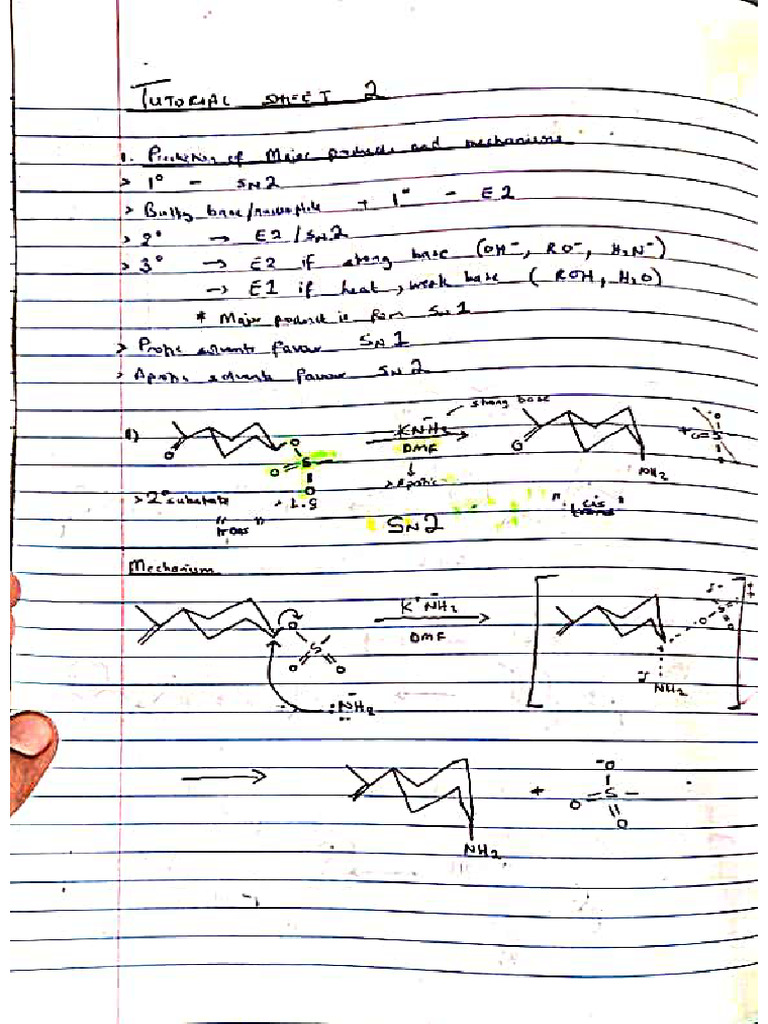 TUTORIAL SHEET 2
1. Prediction of Major products and mechanisms
> 1° - SN2
> Bulky base/nucleophile + 1° - E2
> 2° → E2 / SN2
> 3° → E2 if strong base (OH⁻, RO⁻, H₂N⁻)
→ E1 if heat, weak base (ROH, H₂O)
* Major product is from SN1
> Protic solvents favour SN1
> Aprotic solvents favour SN2
strong base
1) O O S O O KNH₂ DMF O NH₂ + O S O
> Aprotic
> 2° substrate L.G
"trans" SN2 "cis trans"
Mechanism
O S O O K⁺ NH₂⁻ DMF O S O NH₂ ‡
:NH₂⁻
→ NH₂ + ⁻O O=S- O